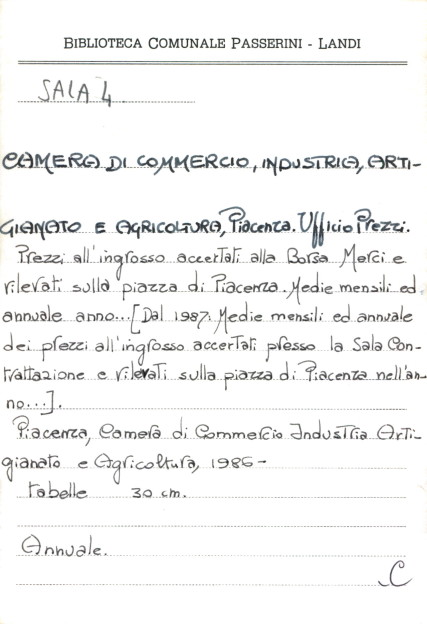 BIBLIOTECA COMUNALE PASSERINI - LANDI
SALA 4
CAMERA DI COMMERCIO, INDUSTRIA, ARTI-
GIANATO E AGRICOLTURA, Piacenza. Ufficio Prezzi.
Prezzi all'ingrosso accertati alla Borsa Merci e
rilevati sulla piazza di Piacenza. Medie mensili ed
annuale anno...[Dal 1987: Medie mensili ed annuale
dei prezzi all'ingrosso accertati presso la Sala Con-
trattazione e rilevati sulla piazza di Piacenza nell'an-
no...].
Piacenza, Camera di Commercio Industria Arti-
gianato e Agricoltura, 1986-
tabelle 30 cm.
Annuale.
C